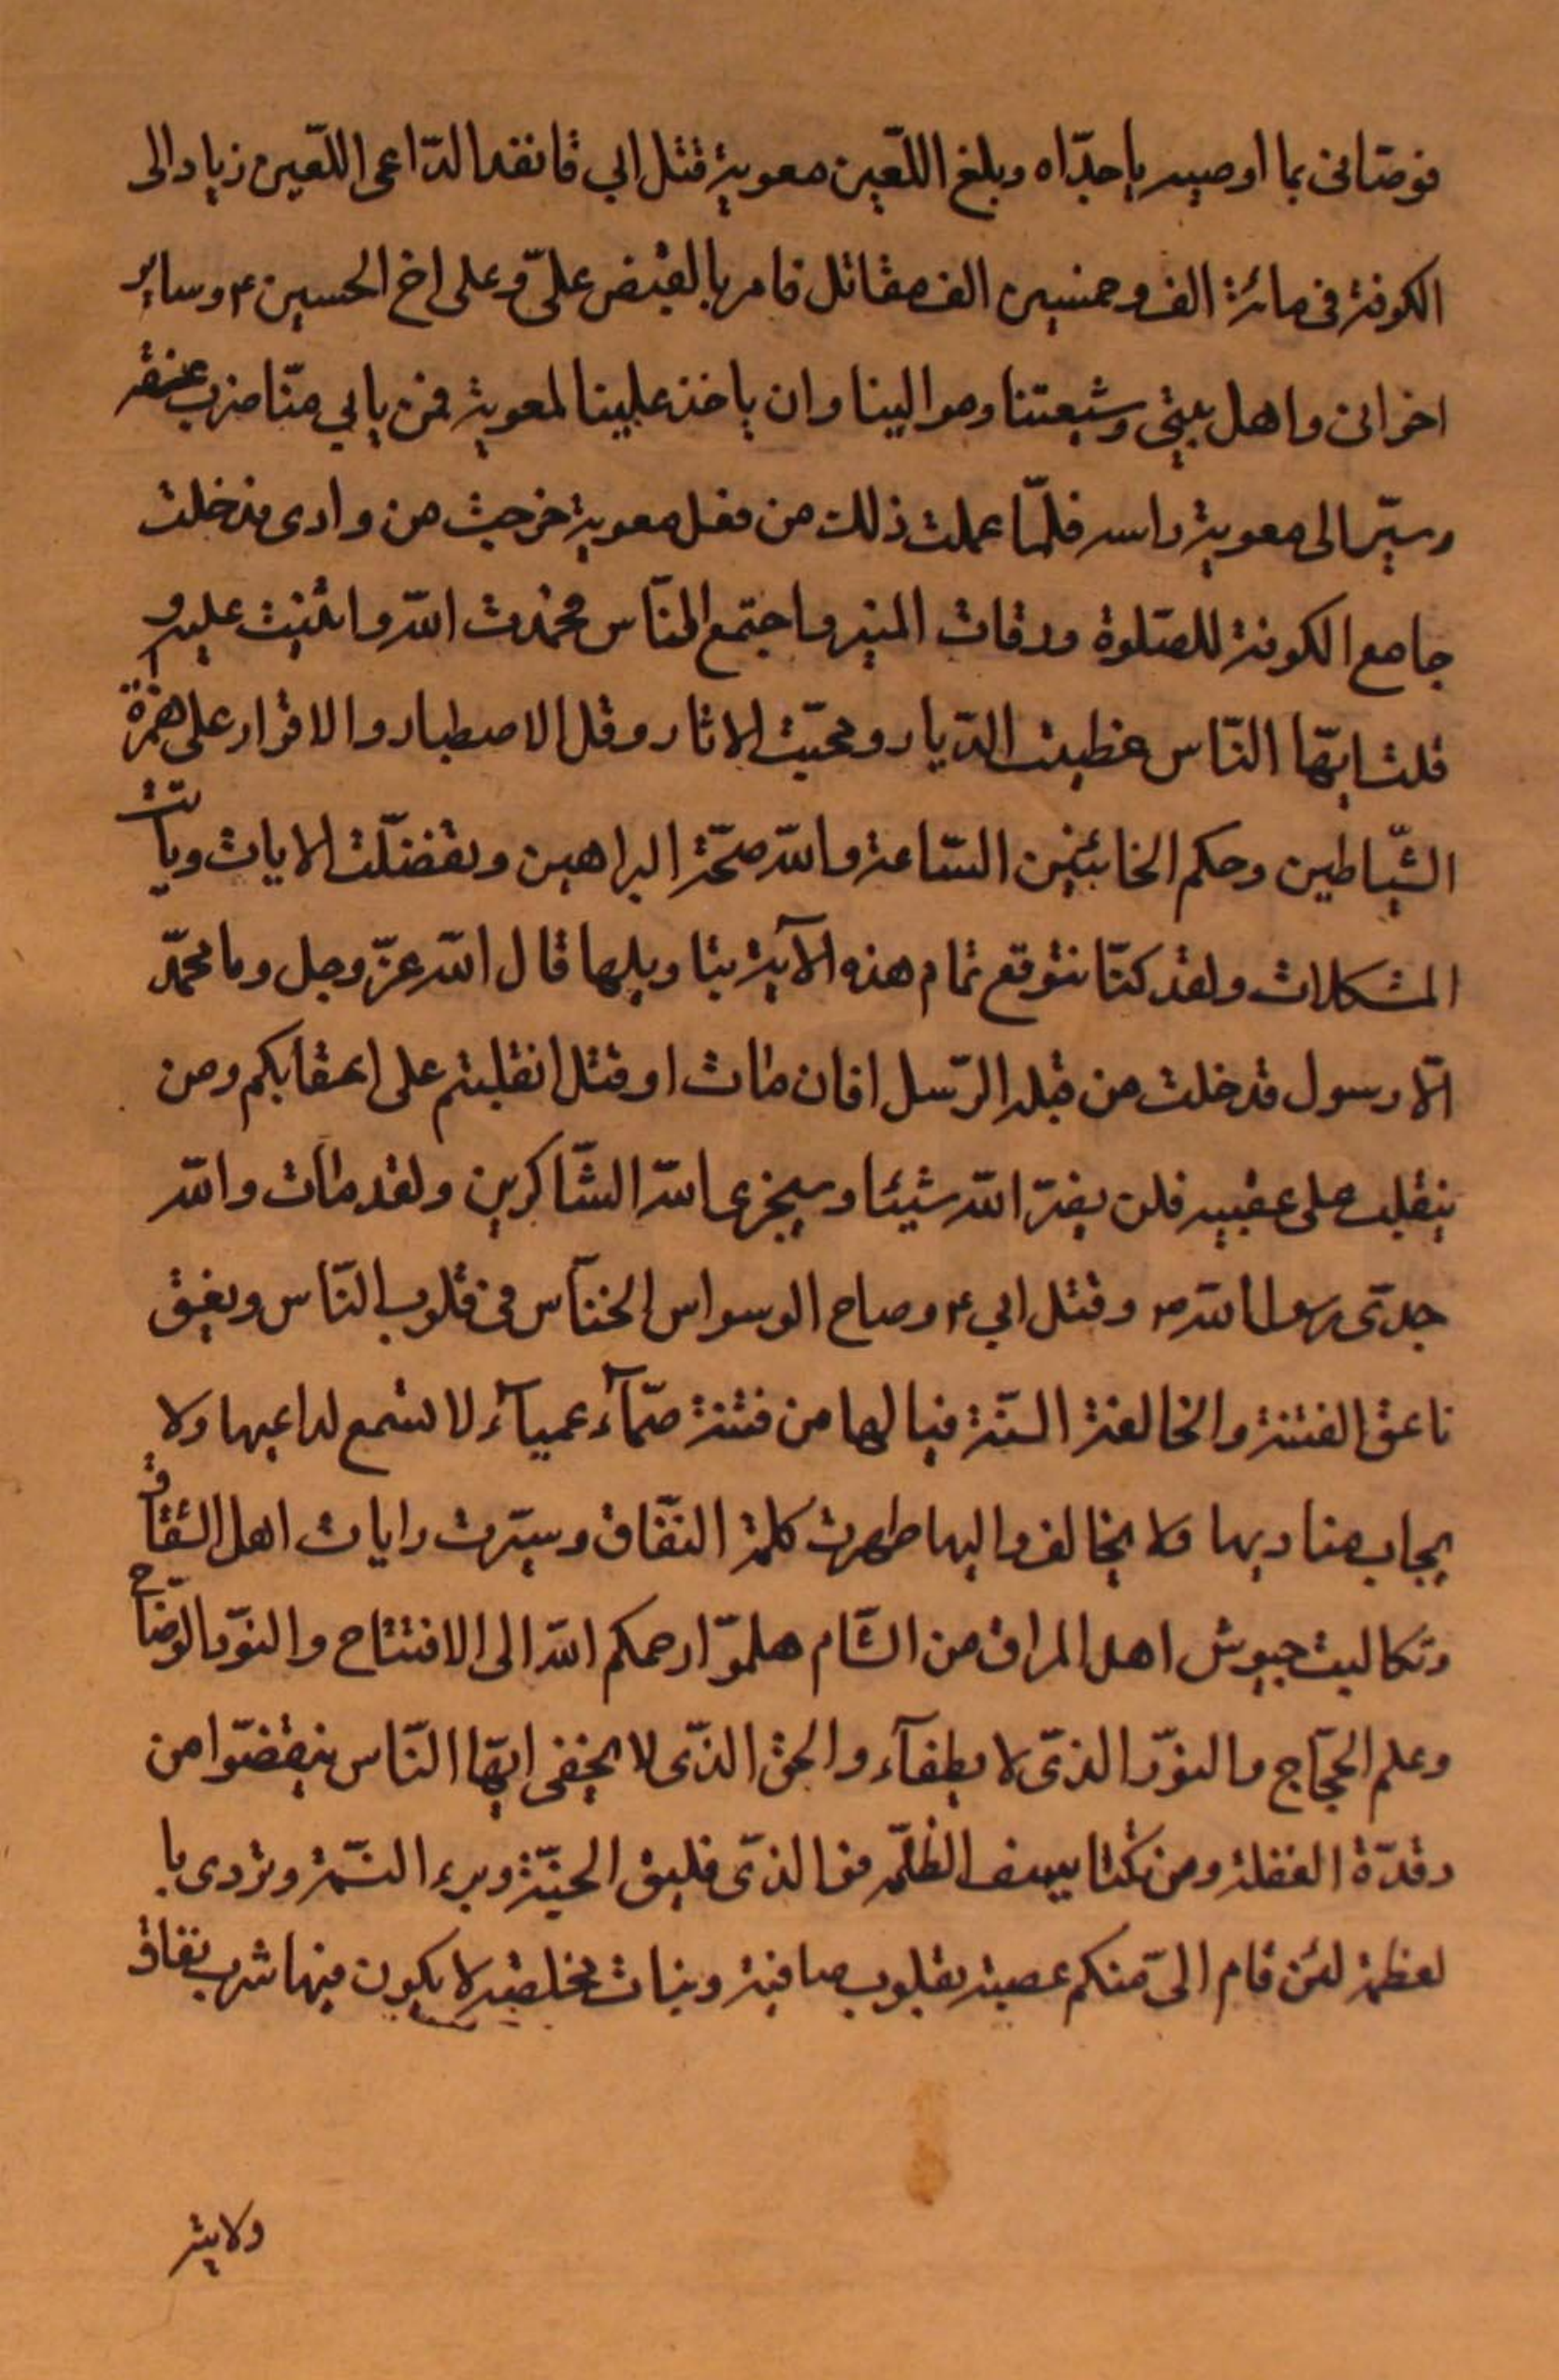 فوصّانى بما اوصيه ياجدّاه وبلغ اللّعين معوية قتل ابي فانفد الدّاعى اللّعين زياد الى
الكوفة فى مائة الف وخمسين الف مقاتل فامر بالقبض علىّ وعلى اخ الحسين ع وساير
اخوانى واهل بيتى وشيعتنا وموالينا وان ياخذ علينا لمعوية فمن يابي منّا ضرب عنقه
وسيّر الى معوية راسه فلمّا علمت ذلك من فعل معوية خرجت من وادى فدخلت
جامع الكوفة للصّلوة ورقات المنبر واجتمع النّاس فحمدت اللّه واثنيت عليه و
قلت ايّها النّاس عظبت الدّيار ومحيّت الاثار وقل الاصطبار والاقرار على همزة
الشّياطين وحكم الخائنين السّاعة واللّه صحّة البراهين وتفضّلت الايات وبانت
المشكلات ولقد كنّا نتوقع تمام هذه الآية بتاويلها قال اللّه عزّ وجل وما محمّد
الّا رسول قد خلت من قبله الرّسل افان مات او قتل انقلبتم على اعقابكم ومن
ينقلب على عقبيه فلن يضرّ اللّه شيئا وسيجزى اللّه الشّاكرين ولقد مات واللّه
جدّى رسول اللّه ص وقتل ابي ع وصاح الوسواس الخنّاس فى قلوب النّاس ونعق
ناعق الفتنة والخالفة السّنة فيالها من فتنة صمّآء عميآء لا تسمع لداعيها ولا
يجاب مناديها ولا يخالف واليها ظهرت كلمة النّفاق وسيّرت رايات اهل الشقاق
وتكالبت جيوش اهل المراق من الشّام هلموّا رحمكم اللّه الى الافتتاح والنوّر الوضّاح
وعلم الحجّاج والنوّر الذّى لا يطفآء والحق الذّى لا يخفى ايّها النّاس تيقضّوا من
رقدّة الغفلة ومن الظّلمه فوالذّى فليق الحبّة وبرء النّسمة وتردى با
لعظمة لئن قام الىّ منكم عصبة بقلوب صافية ونيات مخلصة لا يكون فيها شرب نفاق
ولا ية